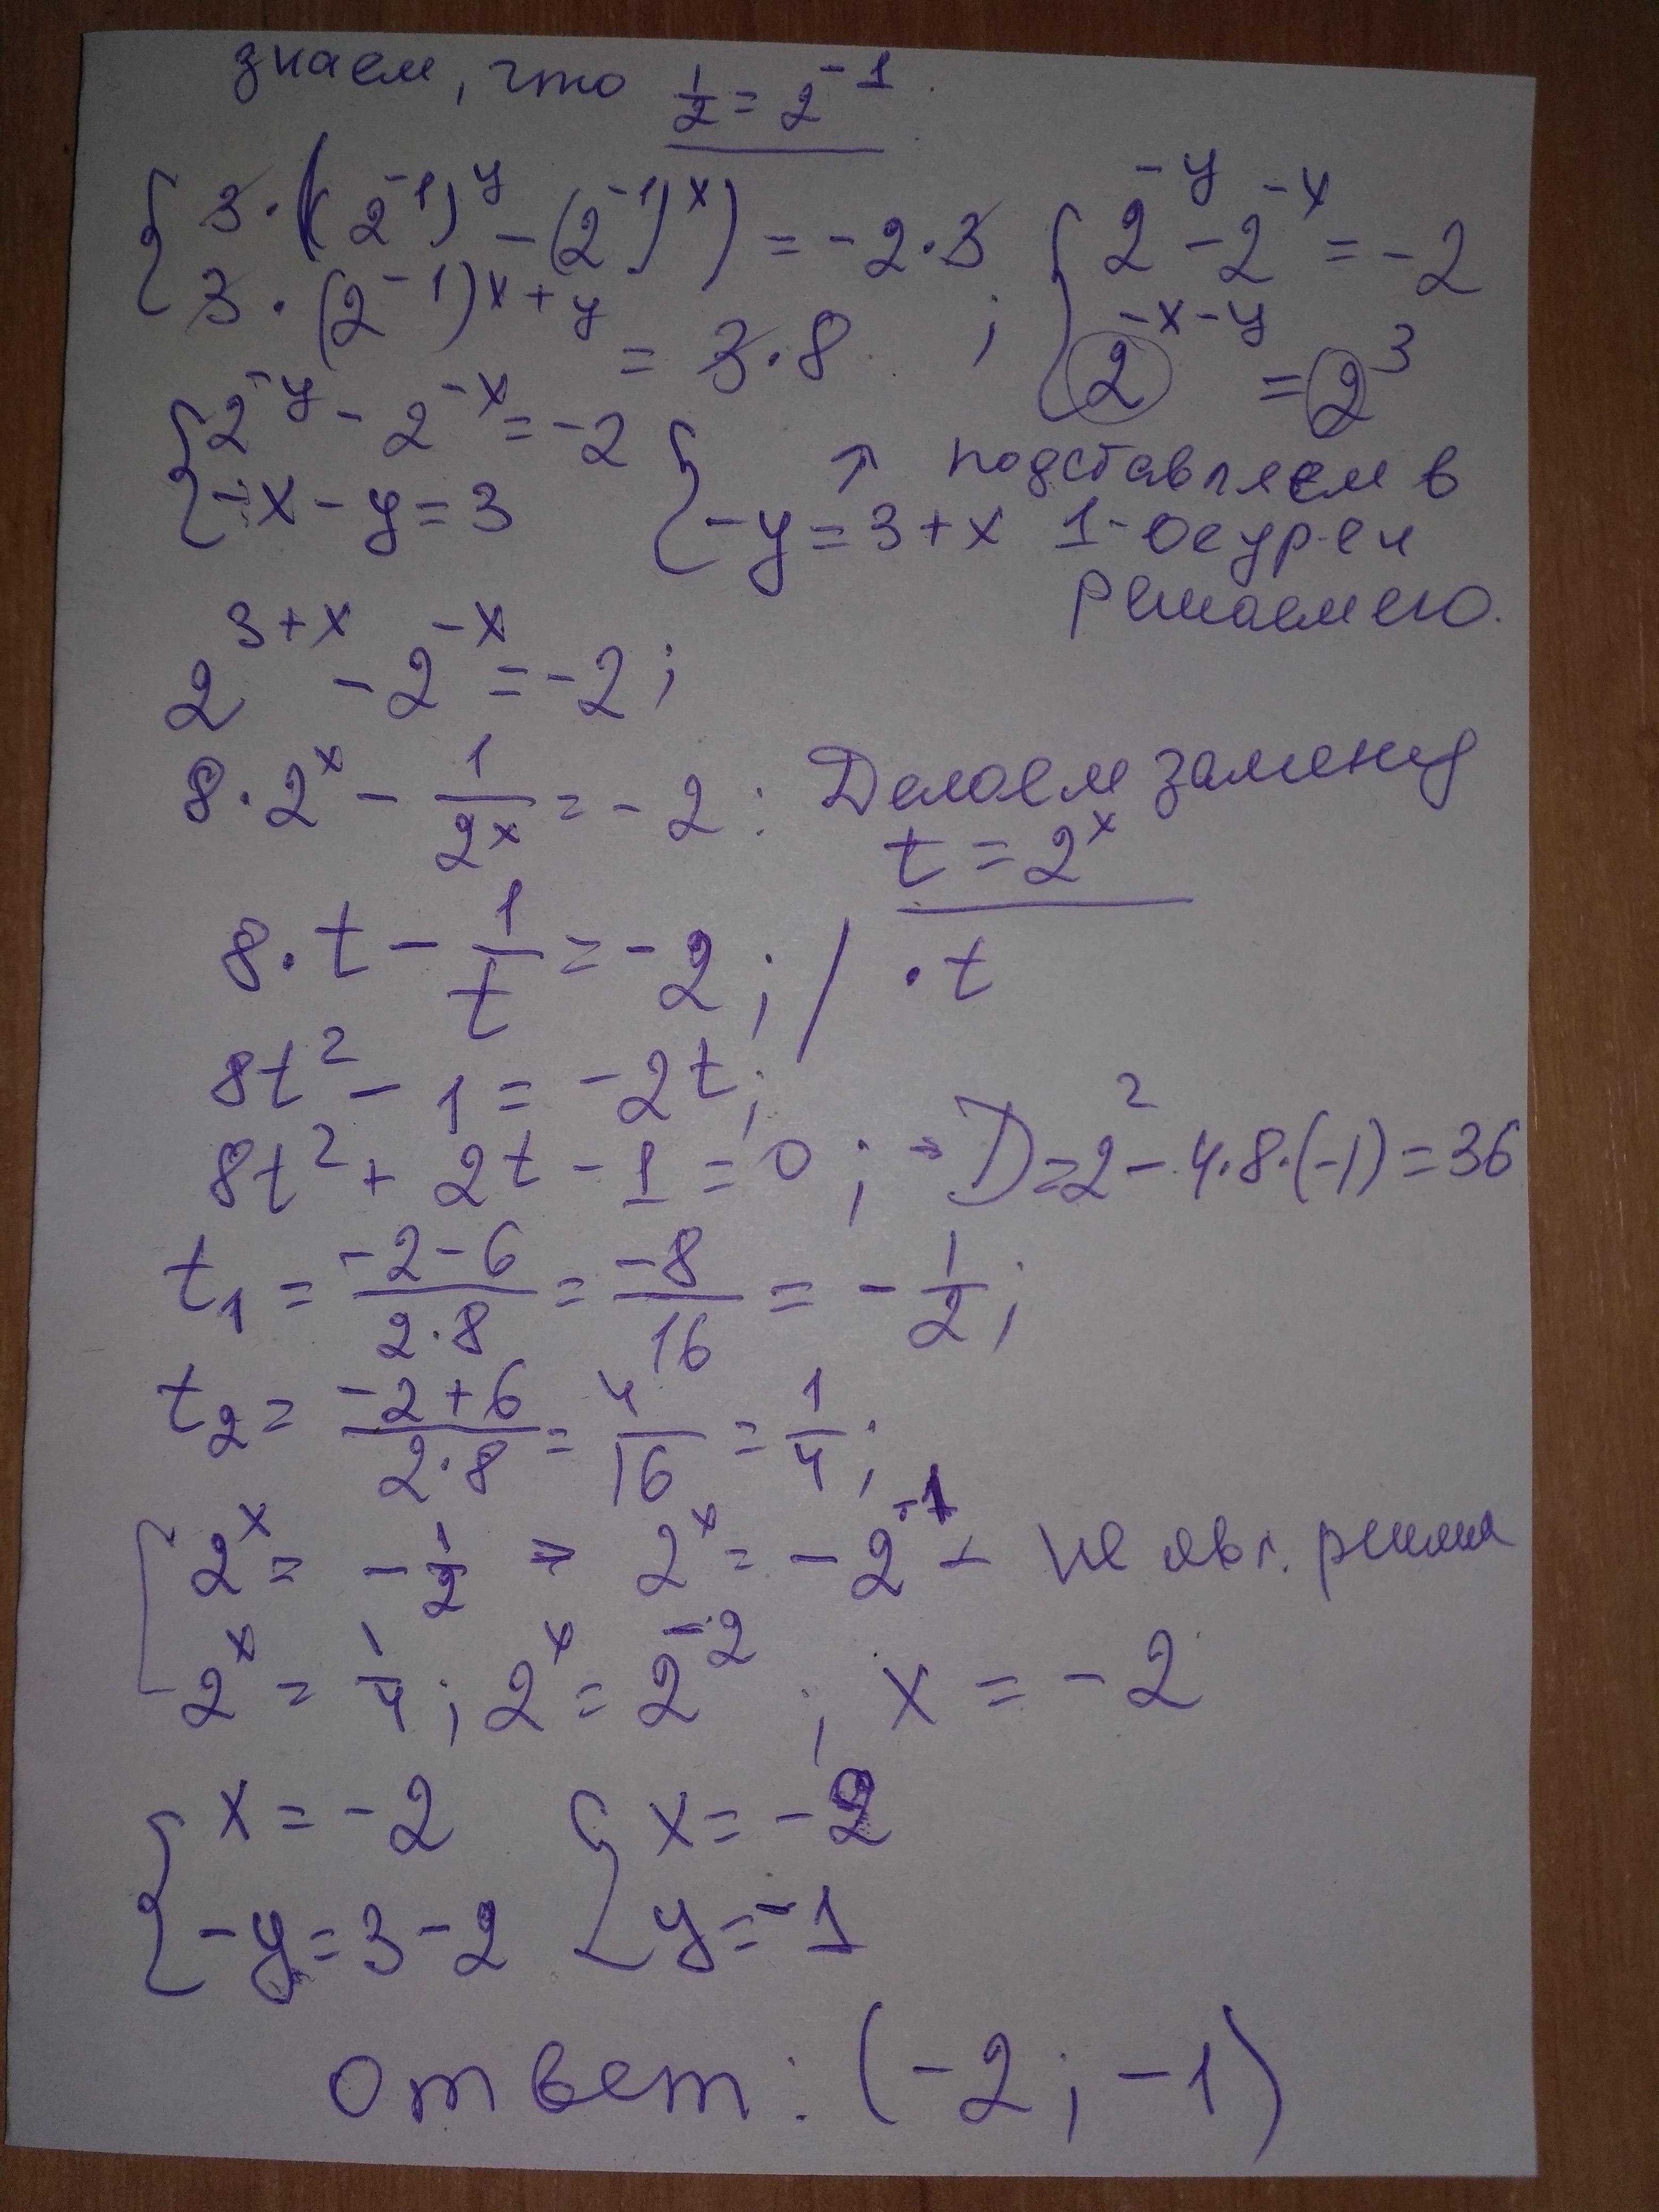 знаем, что 1/2 = 2^-1.
{ 3·((2^-1)^y - (2^-1)^x) = -2·3
{ 3·(2^-1)^(x+y) = 3·8 ;
{ 2^-y - 2^-x = -2
{ 2^(-x-y) = 2^3
{ 2^-y - 2^-x = -2
{ -x - y = 3
{ ↑ подставляем в
{ -y = 3 + x 1-ое ур-е и
решаем его.
2^(3+x) - 2^-x = -2 ;
8·2^x - 1/2^x = -2 : Делаем замену
t = 2^x
8·t - 1/t = -2 ; / ·t
8t^2 - 1 = -2t ;
8t^2 + 2t - 1 = 0 ; → D = 2^2 - 4·8·(-1) = 36
t₁ = (-2-6)/(2·8) = -8/16 = -1/2 ;
t₂ = (-2+6)/(2·8) = 4/16 = 1/4 ;
[ 2^x = -1/2 ⇒ 2^x = -2^-1 - не явл. решен
[ 2^x = 1/4 ; 2^x = 2^-2 ; x = -2
{ x = -2 { x = -2
{ -y = 3 - 2 { y = -1
ответ: (-2 ; -1)